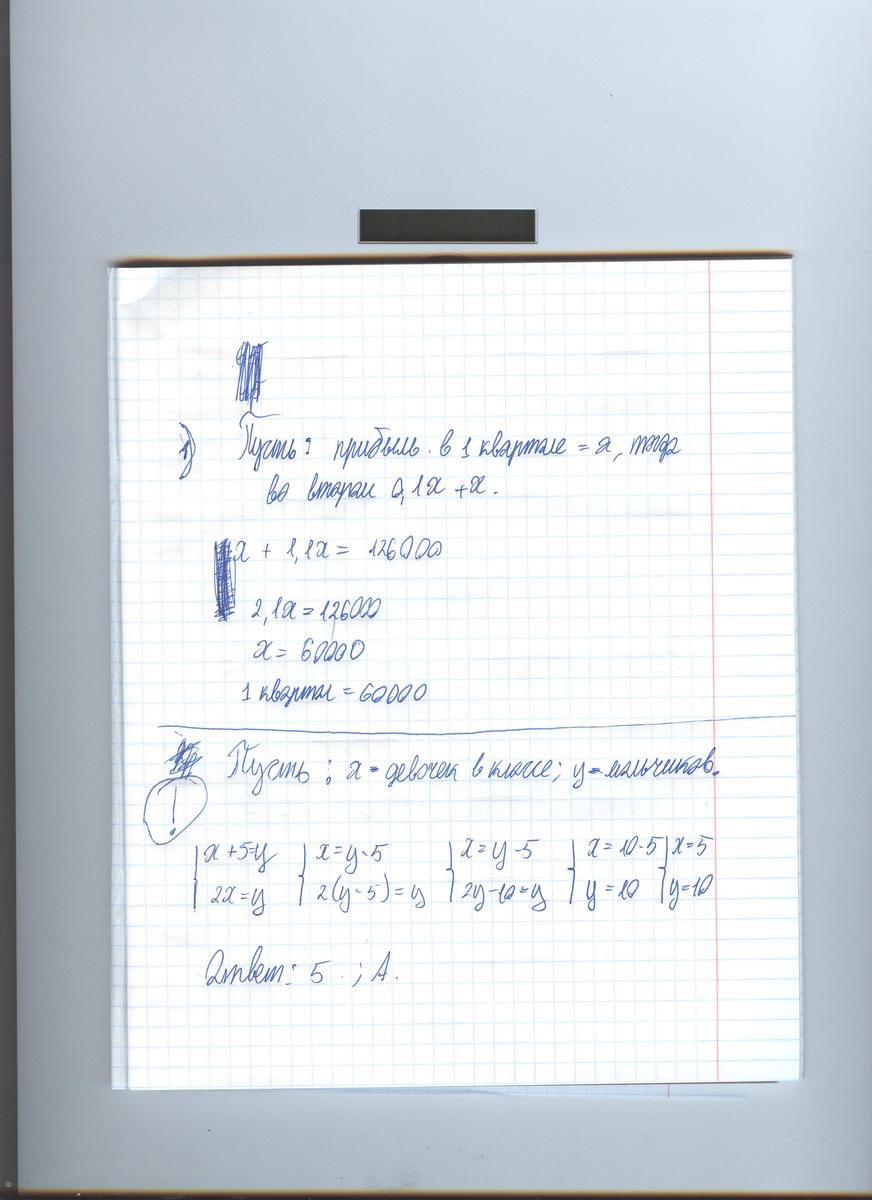 1) Пусть: прибыль в 1 квартале = x, тогда
во втором 0,1x + x.
x + 1,1x = 126000
2,1x = 126000
x = 60000
1 квартал = 60000
Пусть: x - девочек в классе; y - мальчиков.
!
{x+5=y {x=y-5 {x=y-5 {x=10-5 {x=5
{2x=y {2(y-5)=y {2y-10=y {y=10 {y=10
Ответ: 5 ; А.